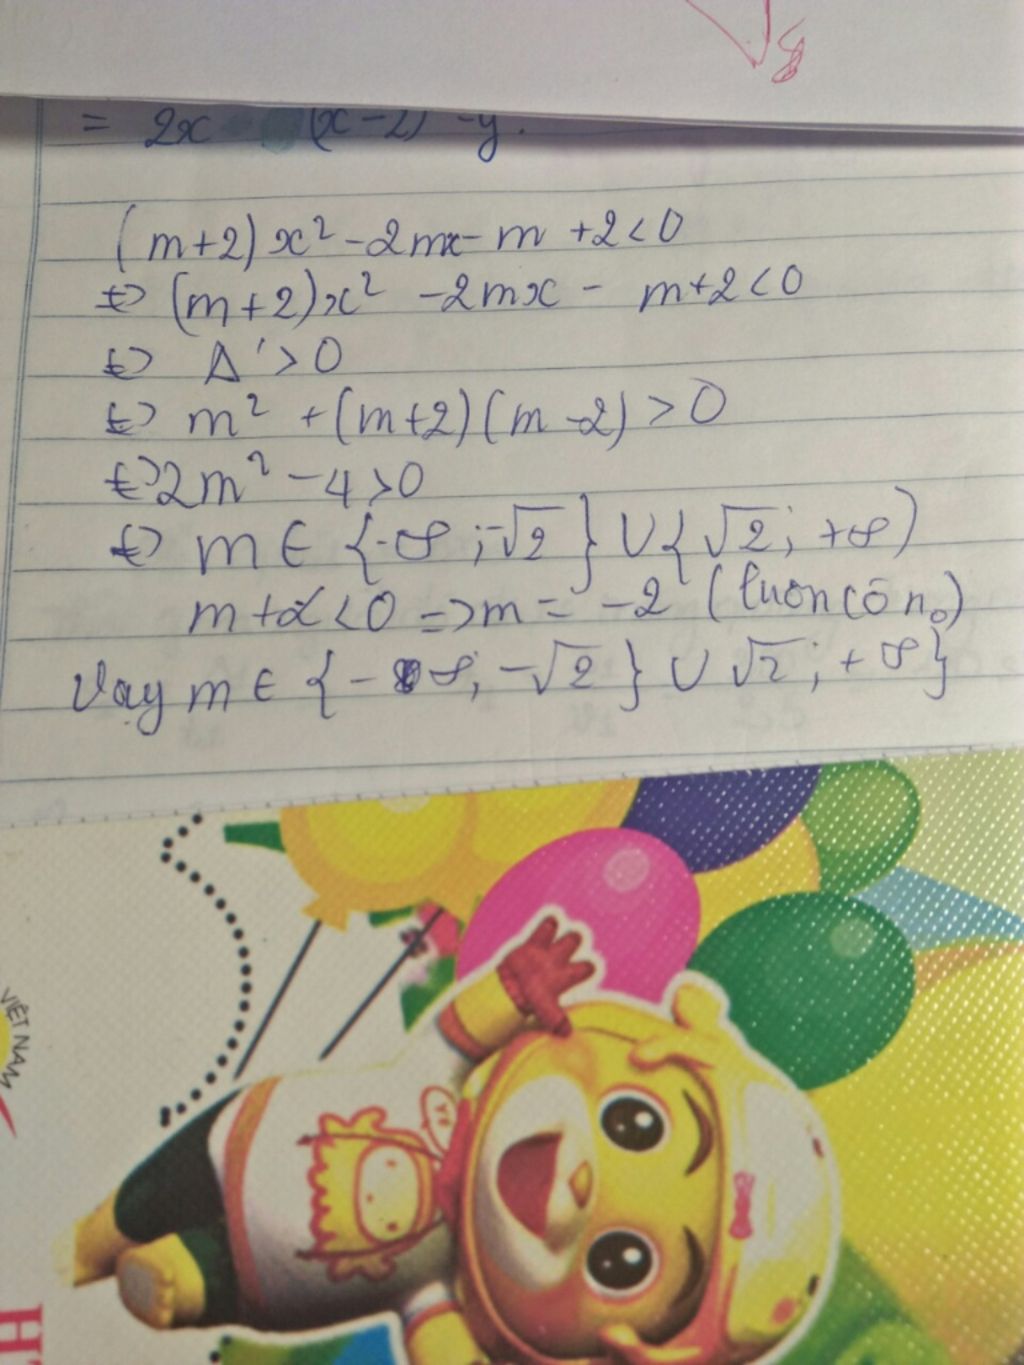 = 2x (x-2) -y.
(m+2)x² -2mx - m +2<0
⇔ (m+2)x² -2mx - m+2<0
⇔ Δ'>0
⇔ m² +(m+2)(m-2)>0
⇔ 2m² -4>0
⇔ m ∈ {-∞ ; -√2 } ∪ { √2 ; +∞)
m+2<0 => m = -2 (luôn có no)
Vay m ∈ {-∞; -√2 } ∪ √2 ; +∞}
VIỆT NAM
H